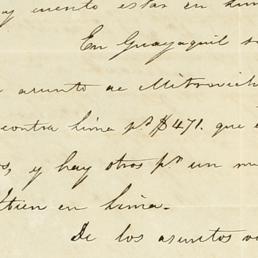 y cuento estar en Lim
En Guayaquil s
asunto de Mitrovich
contra Lima pr $471. que
, y hay otros pr un
en Lima.
De los asuntos